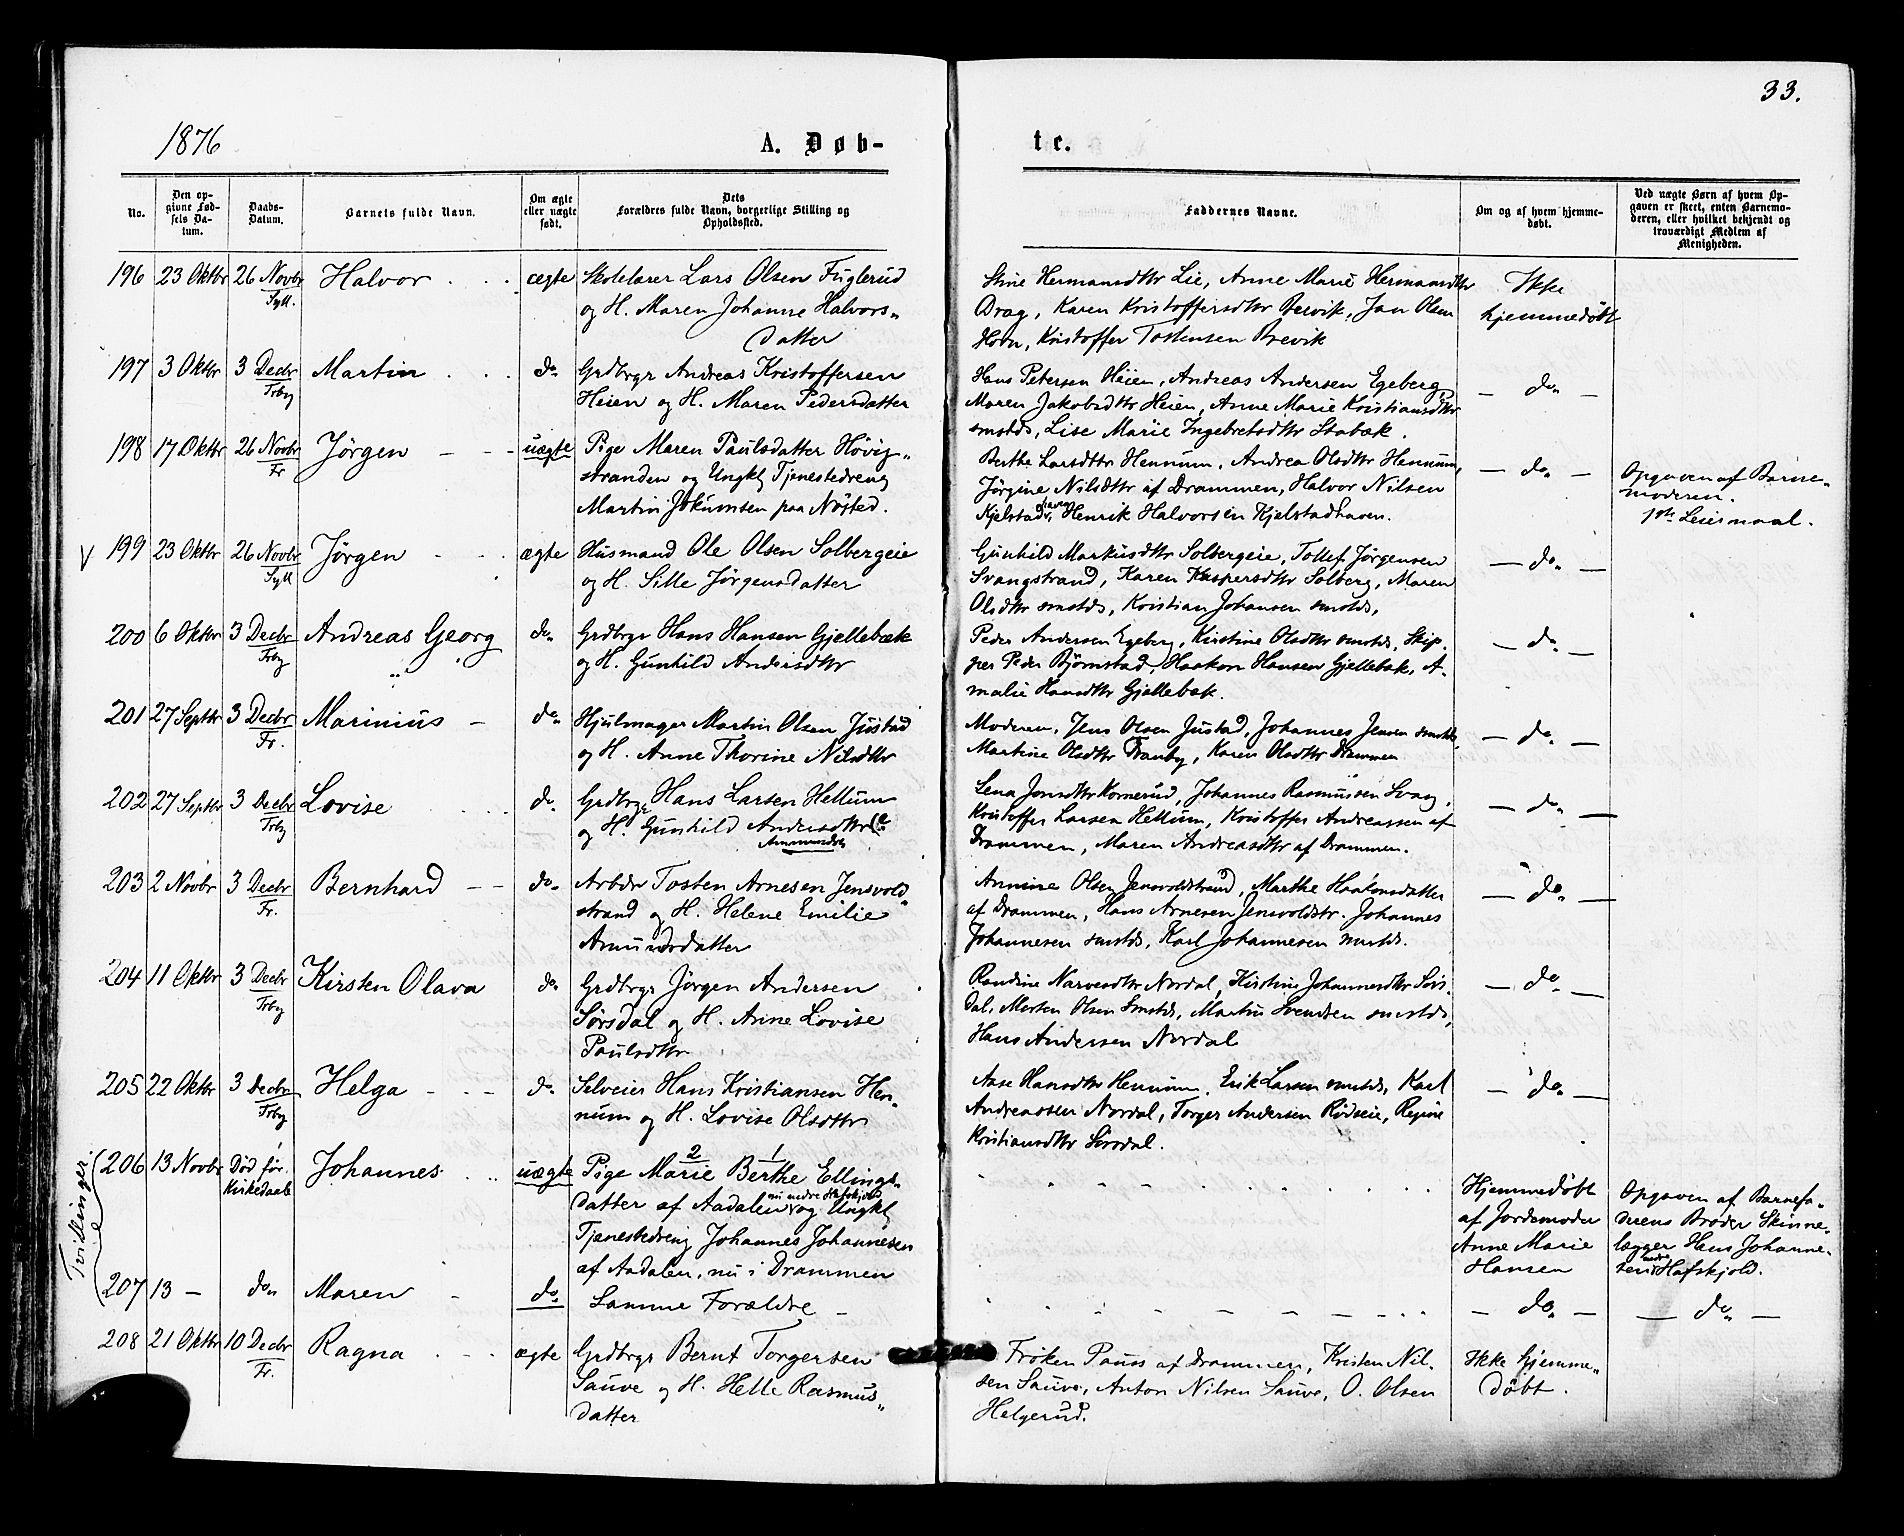 33.
1876
A. Døb-
te.
No.
Den op-
givne Fød-
sels Da-
tum.
Daabs-
Datum.
Barnets fulde Navn.
Om ægte
eller uægte
født.
Dets
Forældres fulde Navn, borgerlige Stilling og
Opholdssted.
Faddernes Navne.
Om og af hvem hjemme-
døbt.
Ved uægte Børn af hvem Op-
gaven er skeet, enten Barnemo-
deren, eller hvilket bekjendt og
troværdigt Medlem af
Menigheden.
196 23 Oktbr 26 Novbr Halvor ægte Skolelærer Lars Olsen Fuglerud
Syll.
og H. Maren Johanne Halvors-
datter
Stine Hermansdttr Lie, Anne Marie Hermansdttr
Drag, Karen Kristoffersdttr Brevik, Jan Olsen
Horn, Kristoffer Tostensen Brevik
Ikke
hjemmedøbt
197 3 Oktbr 3 Decbr Martin do. Grdbrgr Andreas Kristoffersen
Trby
Heien og H. Maren Pedersdatter
Hans Petersen Heien, Andreas Andersen Egeberg,
Maren Jakobsdttr Heien, Anne Marie Kristiansdttr
smstds, Lise Marie Ingebretsdttr Stabæk.
— do. —
198 17 Oktbr 26 Novbr Jörgen uægte Pige Maren Paulsdatter Hövig-
Fr
stranden og Ungkl Tjenestedreng
Martin Jokumsen paa Nøsted.
Berthe Larsdttr Hennum, Andrea Olsdttr Hennum,
Jörgine Nilsdttr af Drammen, Halvor Nilsen
Kjelstadhaven, Henrik Halvorsen Kjelstadhaven.
— do. —
Opgaven af Barne-
moderen.
1ste Leiermaal.
V 199 23 Oktbr 26 Novbr Jörgen ægte Husmand Ole Olsen Solbergeie
Syll
og H. Sille Jörgensdatter
Gunhild Markusdttr Solbergeie, Tollef Jörgensen
Svangstrand, Karen Kaspersdttr Solberg, Maren
Olsdttr smstds, Kristian Johansen smstds,
— do. —
200 6 Oktbr 3 Decbr Andreas Georg do. Grdbrgr Hans Hansen Gjellebæk
Trby
og H. Gunhild Andersdttr
Peder Andersen Egeberg, Kirstine Olsdttr smstds, Skip-
per Peder Björnstad, Haakon Hansen Gjellebæk, A-
malie Hansdttr Gjellebæk.
— do. —
201 27 Septbr 3 Decbr Marinius do. Hjulmager Martin Olsen Justad
Fr.
og H. Anne Thorine Nilsdttr
Moderen, Jens Olsen Justad, Johannes Jensen smstds,
Martine Olsdttr Tranby, Karen Olsdttr Drammen
— do. —
202 27 Septbr 3 Decbr Lovise do. Grdbrgr Hans Larsen Hellum
Trby
og H. Gunhild Andersdttr
Lena Jonsdttr Kornerud, Johannes Rasmussen Svang,
Kristoffer Larsen Hellum, Kristoffer Andreassen af
Drammen, Maren Andreasdttr af Drammen.
— do. —
203 2 Novbr 3 Decbr Bernhard do. Arbdr Tosten Arnesen Jensvold-
Fr.
strand og H. Helene Emilie
Amundsdatter
Annine Olsen Jensvoldstrand, Marthe Haakonsdatter
af Drammen, Hans Arnesen Jensvoldstr. Johannes
Johannesen smstds, Karl Johannesen smstds.
— do. —
204 11 Oktbr 3 Decbr Kirsten Olava do. Grdbrgr Jörgen Andersen
Trby
Sörsdal og H. Anne Lovise
Paulsdttr
Randine Narvesdttr Nordal, Kirstine Johannesdttr Sörs-
dal, Morten Olsen smstds, Martin Svendsen smstds,
Hans Andersen Nordal
— do. —
205 22 Oktbr 3 Decbr Helga do. Selveier Hans Kristiansen Hen-
Trby
num og H. Lovise Olsdttr
Aase Hansdttr Hennum, Erik Larsen smstds, Karl
Andreassen Nordal, Torger Andersen Rödseie, Regine
Kristiansdttr Sörsdal.
— do. —
Tvillinger.
206 13 Novbr Død før Johannes uægte Pige Marie 2 Berthe 1 Ellings-
Kirkedaab
datter af Aadalen nu nedre Hafskjold og Ungkl
Tjenestedreng Johannes Johannesen
af Aadalen, nu i Drammen
Hjemmedøbt
af Jordemoder
Anne Marie
Hansen
Opgaven af Barnefa-
derens Broder Skinne-
lægger Hans Johanne-
sen nedre Hafskjold.
207 13 — do. Maren do. Samme Forældre —
— do. —
— do. —
208 21 Oktbr 10 Decbr Ragna ægte Grdbrgr Bernt Torgersen
Fr.
Sauve og H. Helle Rasmus-
datter
Frøken Pauss af Drammen, Kristen Nil-
sen Sauve, Anton Nilsen Sauve, O. Olsen
Helgerud.
Ikke hjemme-
døbt.